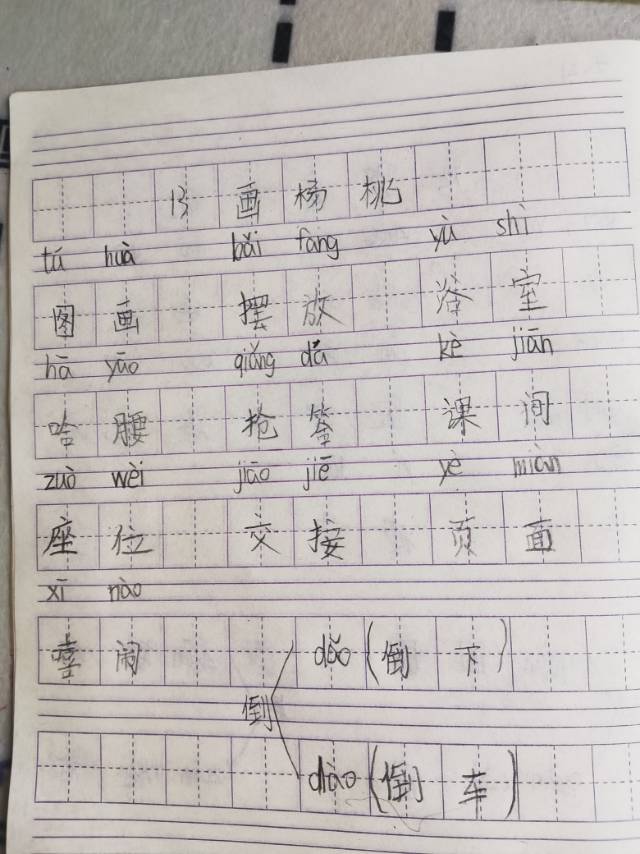 13 画 杨 桃
tú huà bǎi fàng yù shì
图 画 摆 放 浴 室
hā yāo qiǎng dá kè jiān
哈 腰 抢 答 课 间
zuò wèi jiāo jiē yè miàn
座 位 交 接 页 面
xī nào
嘻 闹 dǎo (倒 下)
倒
dào (倒 车)